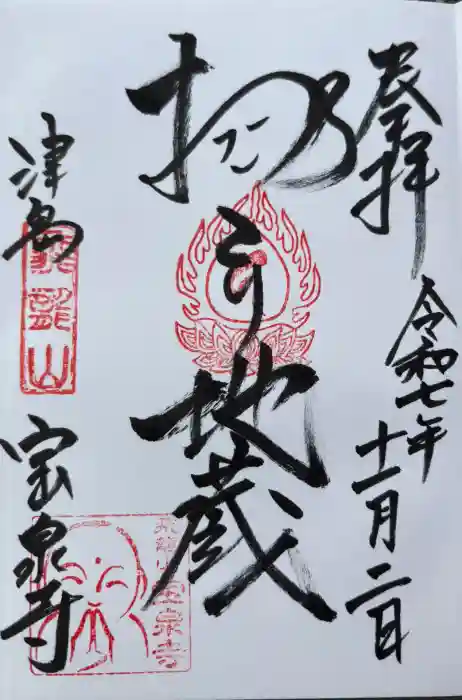 奉拝
令和七年
十一月二日
抱き地蔵
津島
飛龍山
宝泉寺
飛龍山宝泉寺